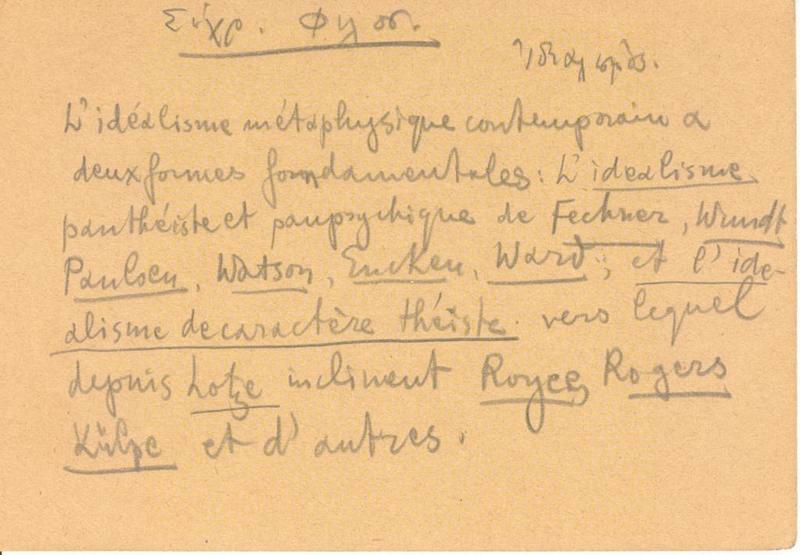 Σύχρ. Φιλοσ.
Ἰδεαλισμὸς.
L'idéalisme métaphysique contemporain a
deux formes fondamentales: L'idealisme
panthéiste et panpsychique de Fechner, Wundt
Paulsen, Watson, Eucken, Ward; et l'ide-
alisme de caractère théiste vers lequel
depuis Lotze inclinent Royce, Rogers
Külpe et d'autres.